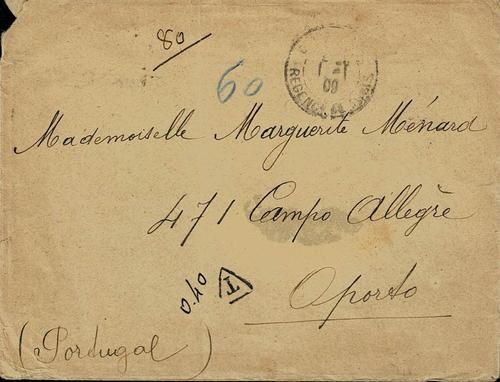 80
60
09
Mademoiselle Marguerite Ménard
471 Campo Allegrè
0.40 T
Oporto
(Portugal)